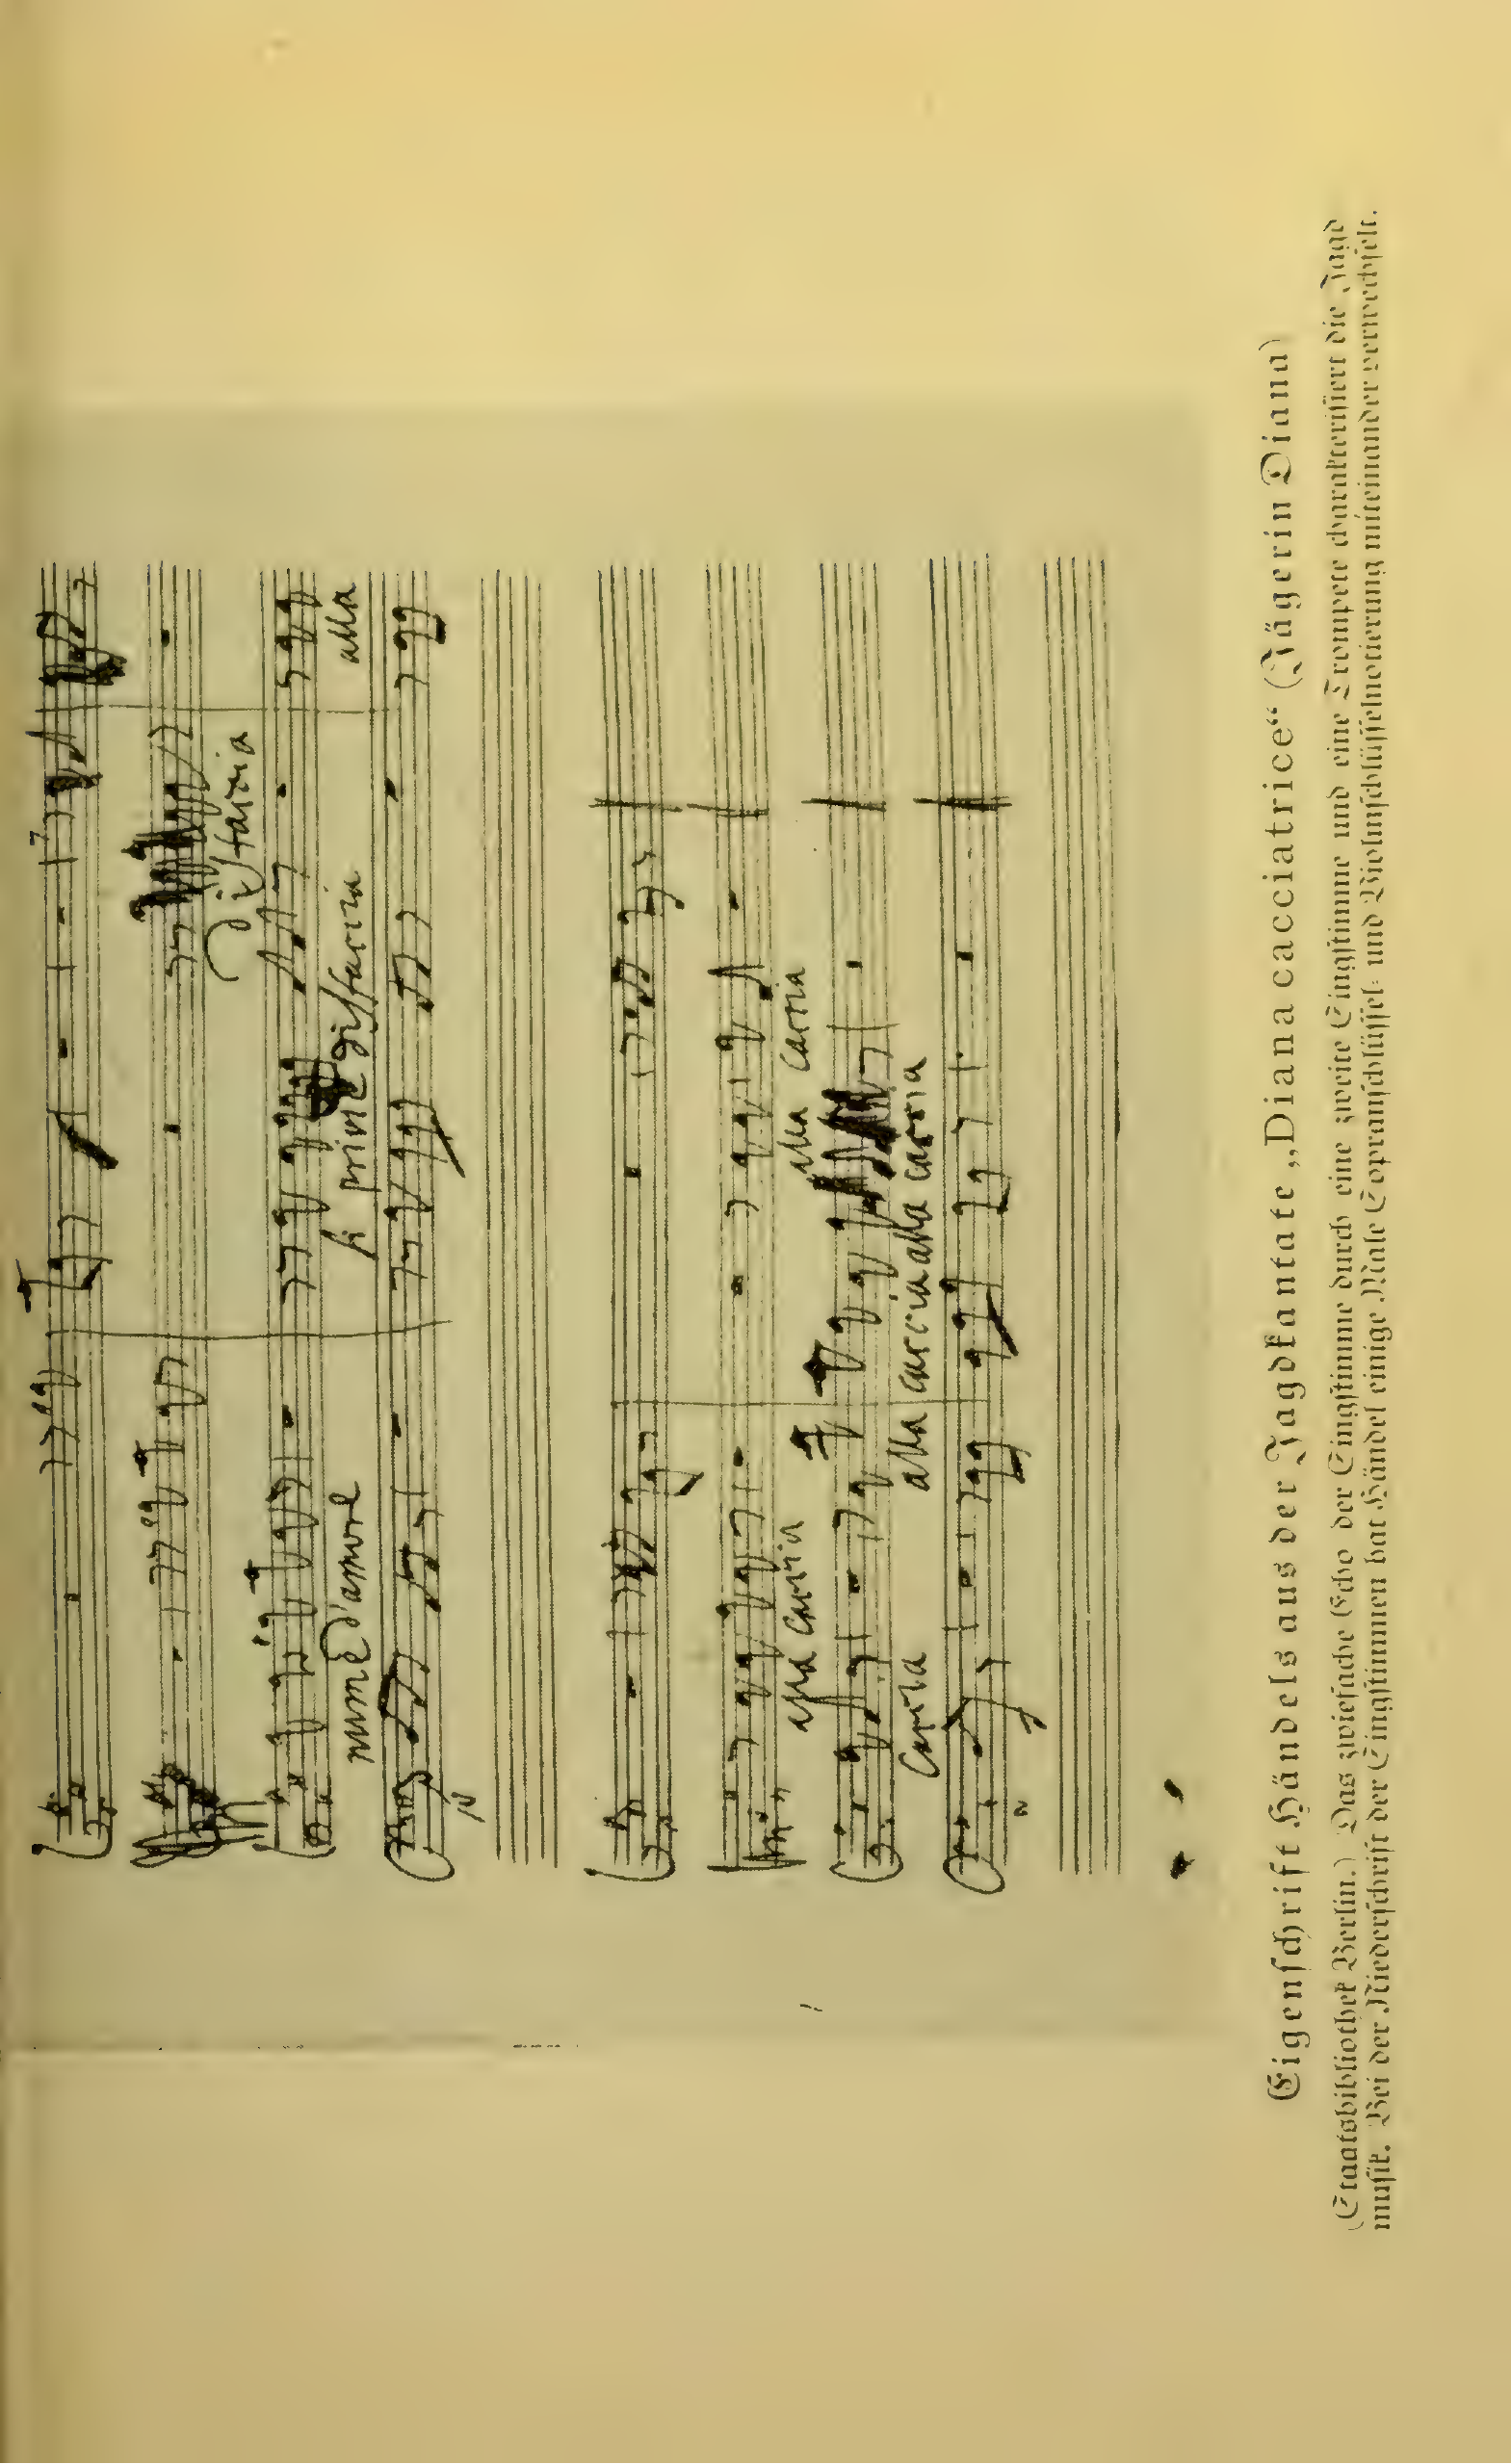 Disfaccia
nume d'amore si privi e disfaccia alla
alla caccia alla caccia
Caccia alla caccia alla caccia
Eigenschrift Händels aus der Jagdkantate „Diana cacciatrice“ (Jägerin Diana)
(Staatsbibliothek Berlin.) Das zwiefache Echo der Singstimme durch eine zweite Singstimme und eine Trompete charakterisiert die Jagd
musik. Bei der Niederschrift der Singstimmen hat Händel einige Male Sopranschlüssel- und Violinschlüsselnotierung miteinander verwechselt.